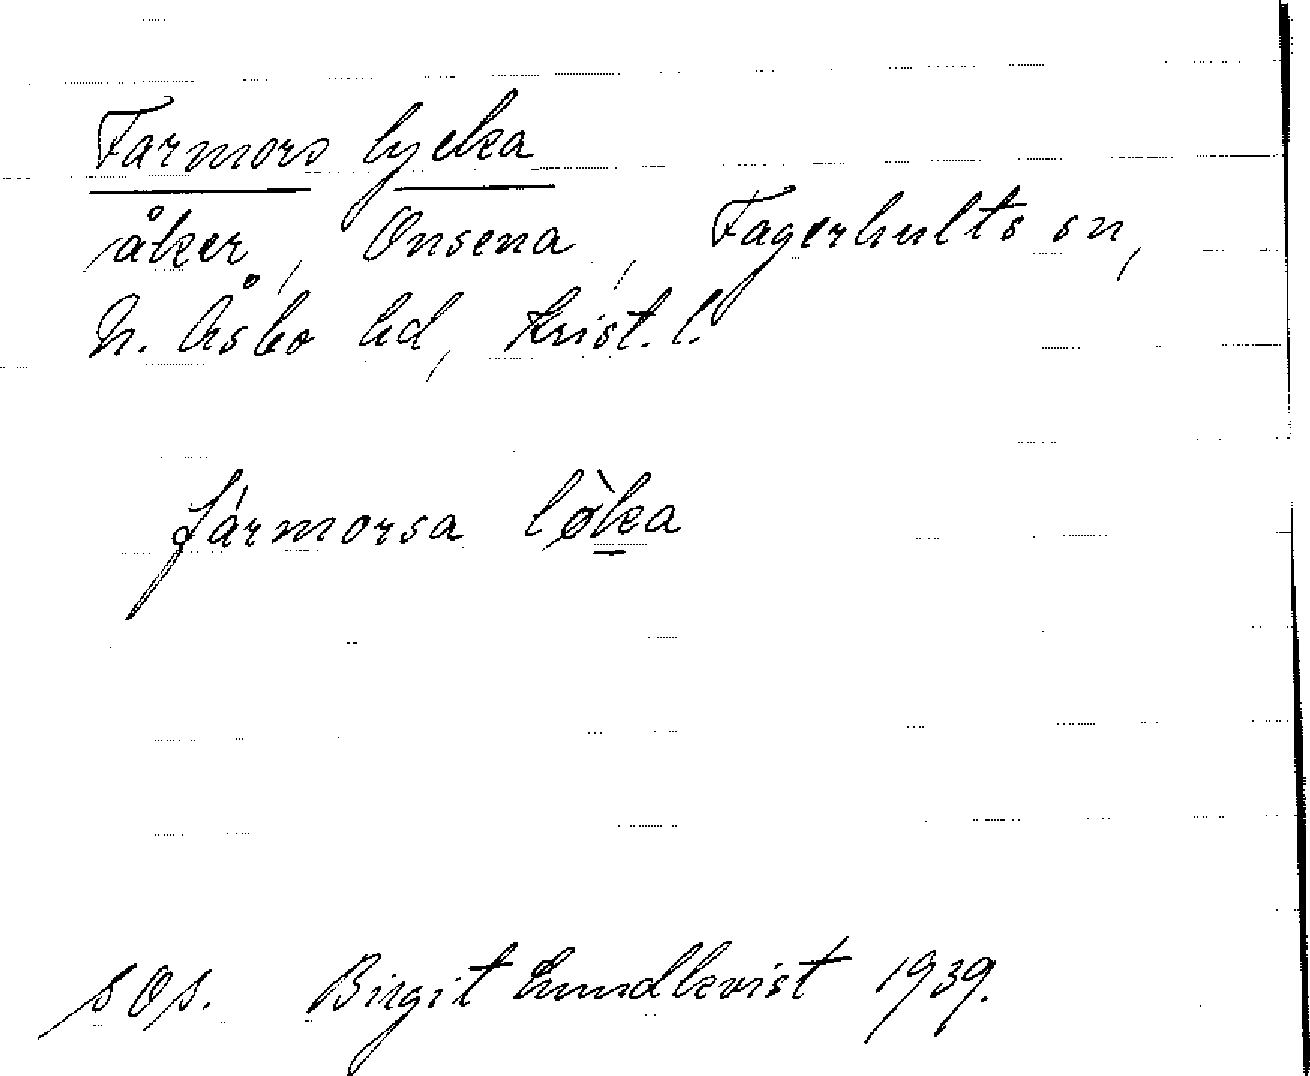 Farmors lycka
åker, Onsena, Fagerhults sn,
N. Åsbo hd, Krist. l.
fàrmorsa lø̀ka
s Os. Birgit Lundkvist 1939.